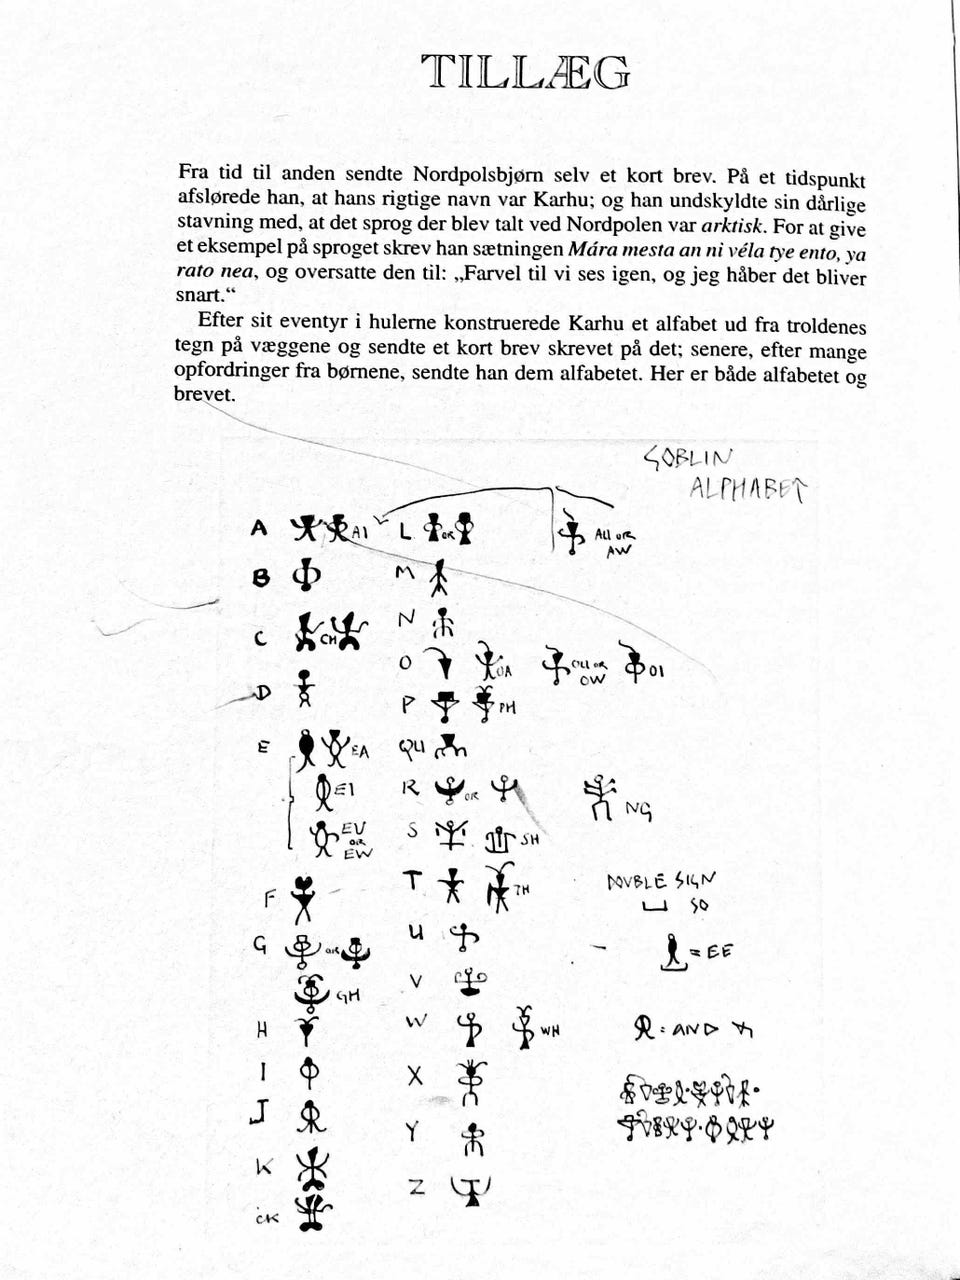 TILLÆG
Fra tid til anden sendte Nordpolsbjørn selv et kort brev. På et tidspunkt
afslørede han, at hans rigtige navn var Karhu; og han undskyldte sin dårlige
stavning med, at det sprog der blev talt ved Nordpolen var arktisk. For at give
et eksempel på sproget skrev han sætningen Mára mesta an ni véla tye ento, ya
rato nea, og oversatte den til: „Farvel til vi ses igen, og jeg håber det bliver
snart.“
Efter sit eventyr i hulerne konstruerede Karhu et alfabet ud fra troldenes
tegn på væggene og sendte et kort brev skrevet på det; senere, efter mange
opfordringer fra børnene, sendte han dem alfabetet. Her er både alfabetet og
brevet.
GOBLIN
ALPHABET
A AI L OR AU OR
AW
B M
C CH N
O OA OU OR
OW OI
D P PH
E EA QU
EI R OR NG
EU
OR
EW S SH
F T TH DOUBLE SIGN
SO
G OR U = EE
GH V
H W WH = AND
I X
J Y
K Z
CK